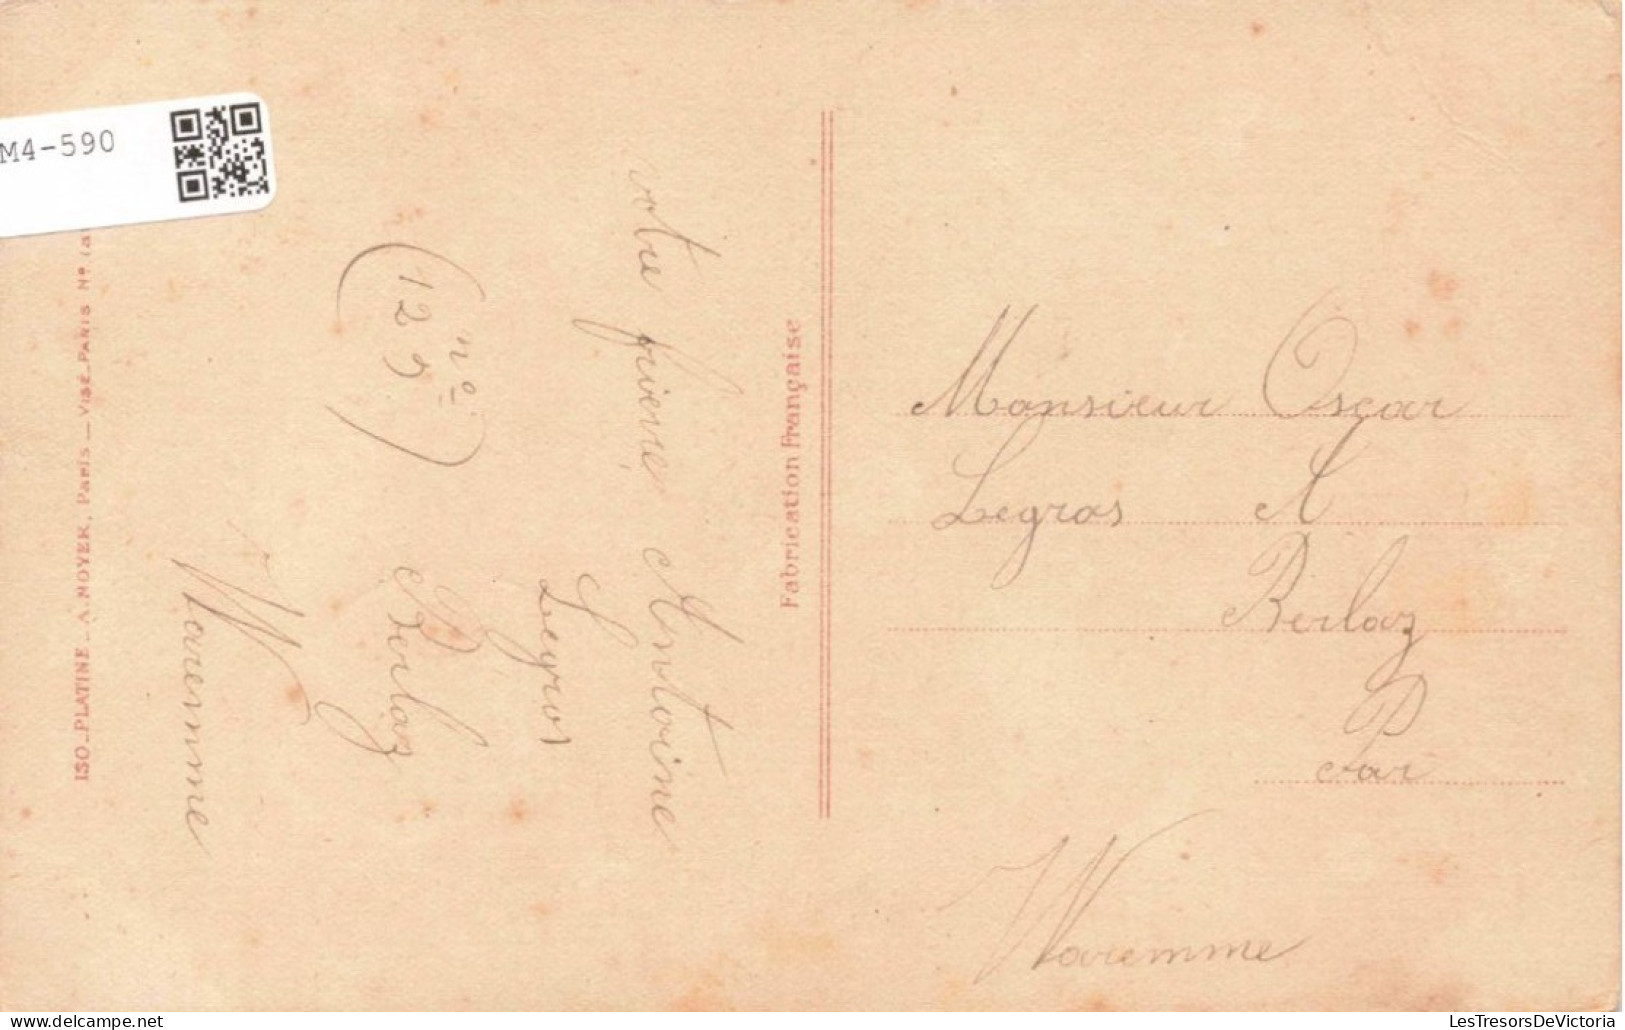 M4-590
ISO-PLATINE - A. NOYER, Paris - VISÉ PARIS Nº (a
votre frivene Antoine
Legros
(nº 125) Berlaz
Waremme
Fabrication Française
Monsieur Oscar
Legros A
Berlaz
P
Par
Waremme
LesTresorsDeVictoria